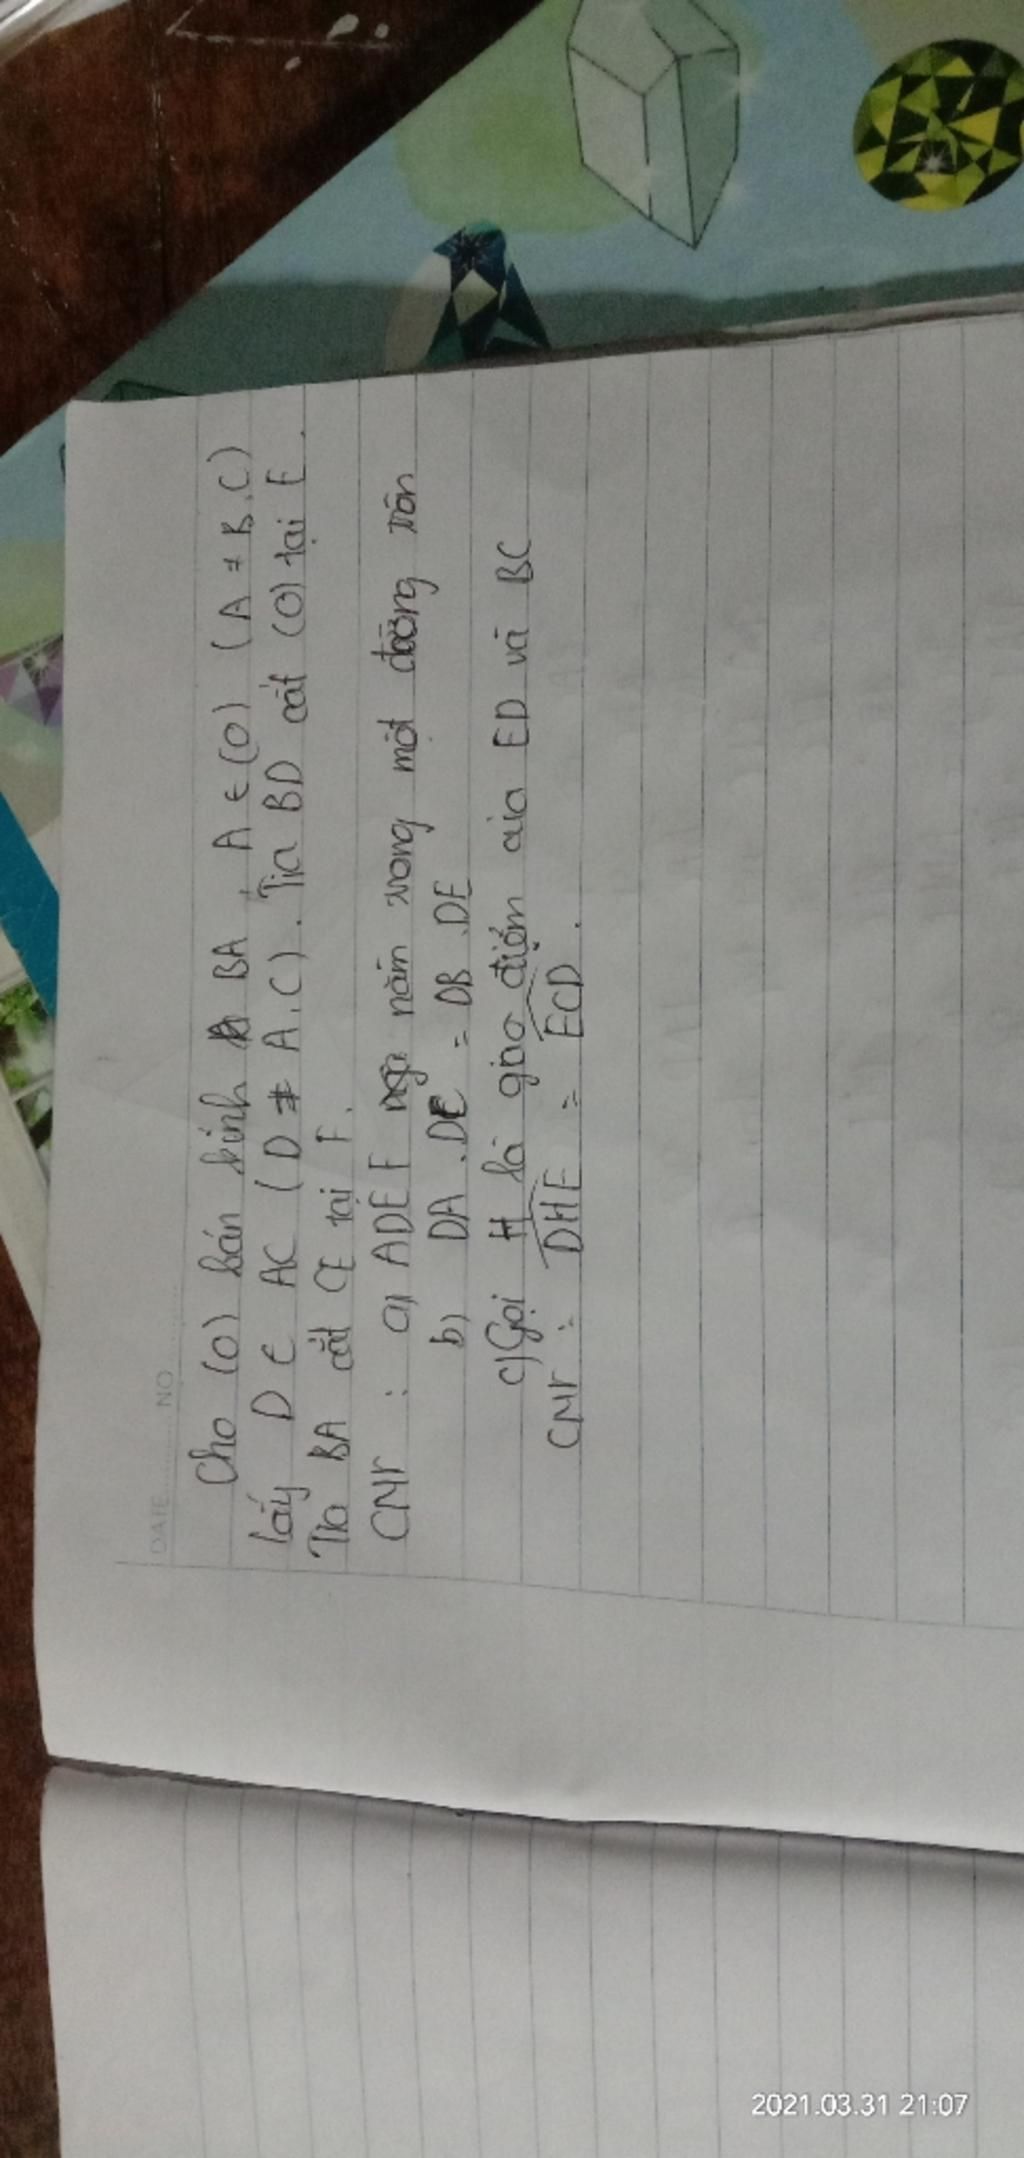 DATE NO
Cho (O) bán kính BA, A ∈ (O) (A ≠ B, C)
lấy D ∈ AC (D ≠ A, C). Tia BD cắt (O) tại E.
Tia BA cắt CE tại F.
CMr : a) ADEF nằm trong một đường tròn
b) DA . DC = DB . DE
c) Gọi H là giao điểm của ED và BC
CMr : DHE = ECD.
2021.03.31 21:07